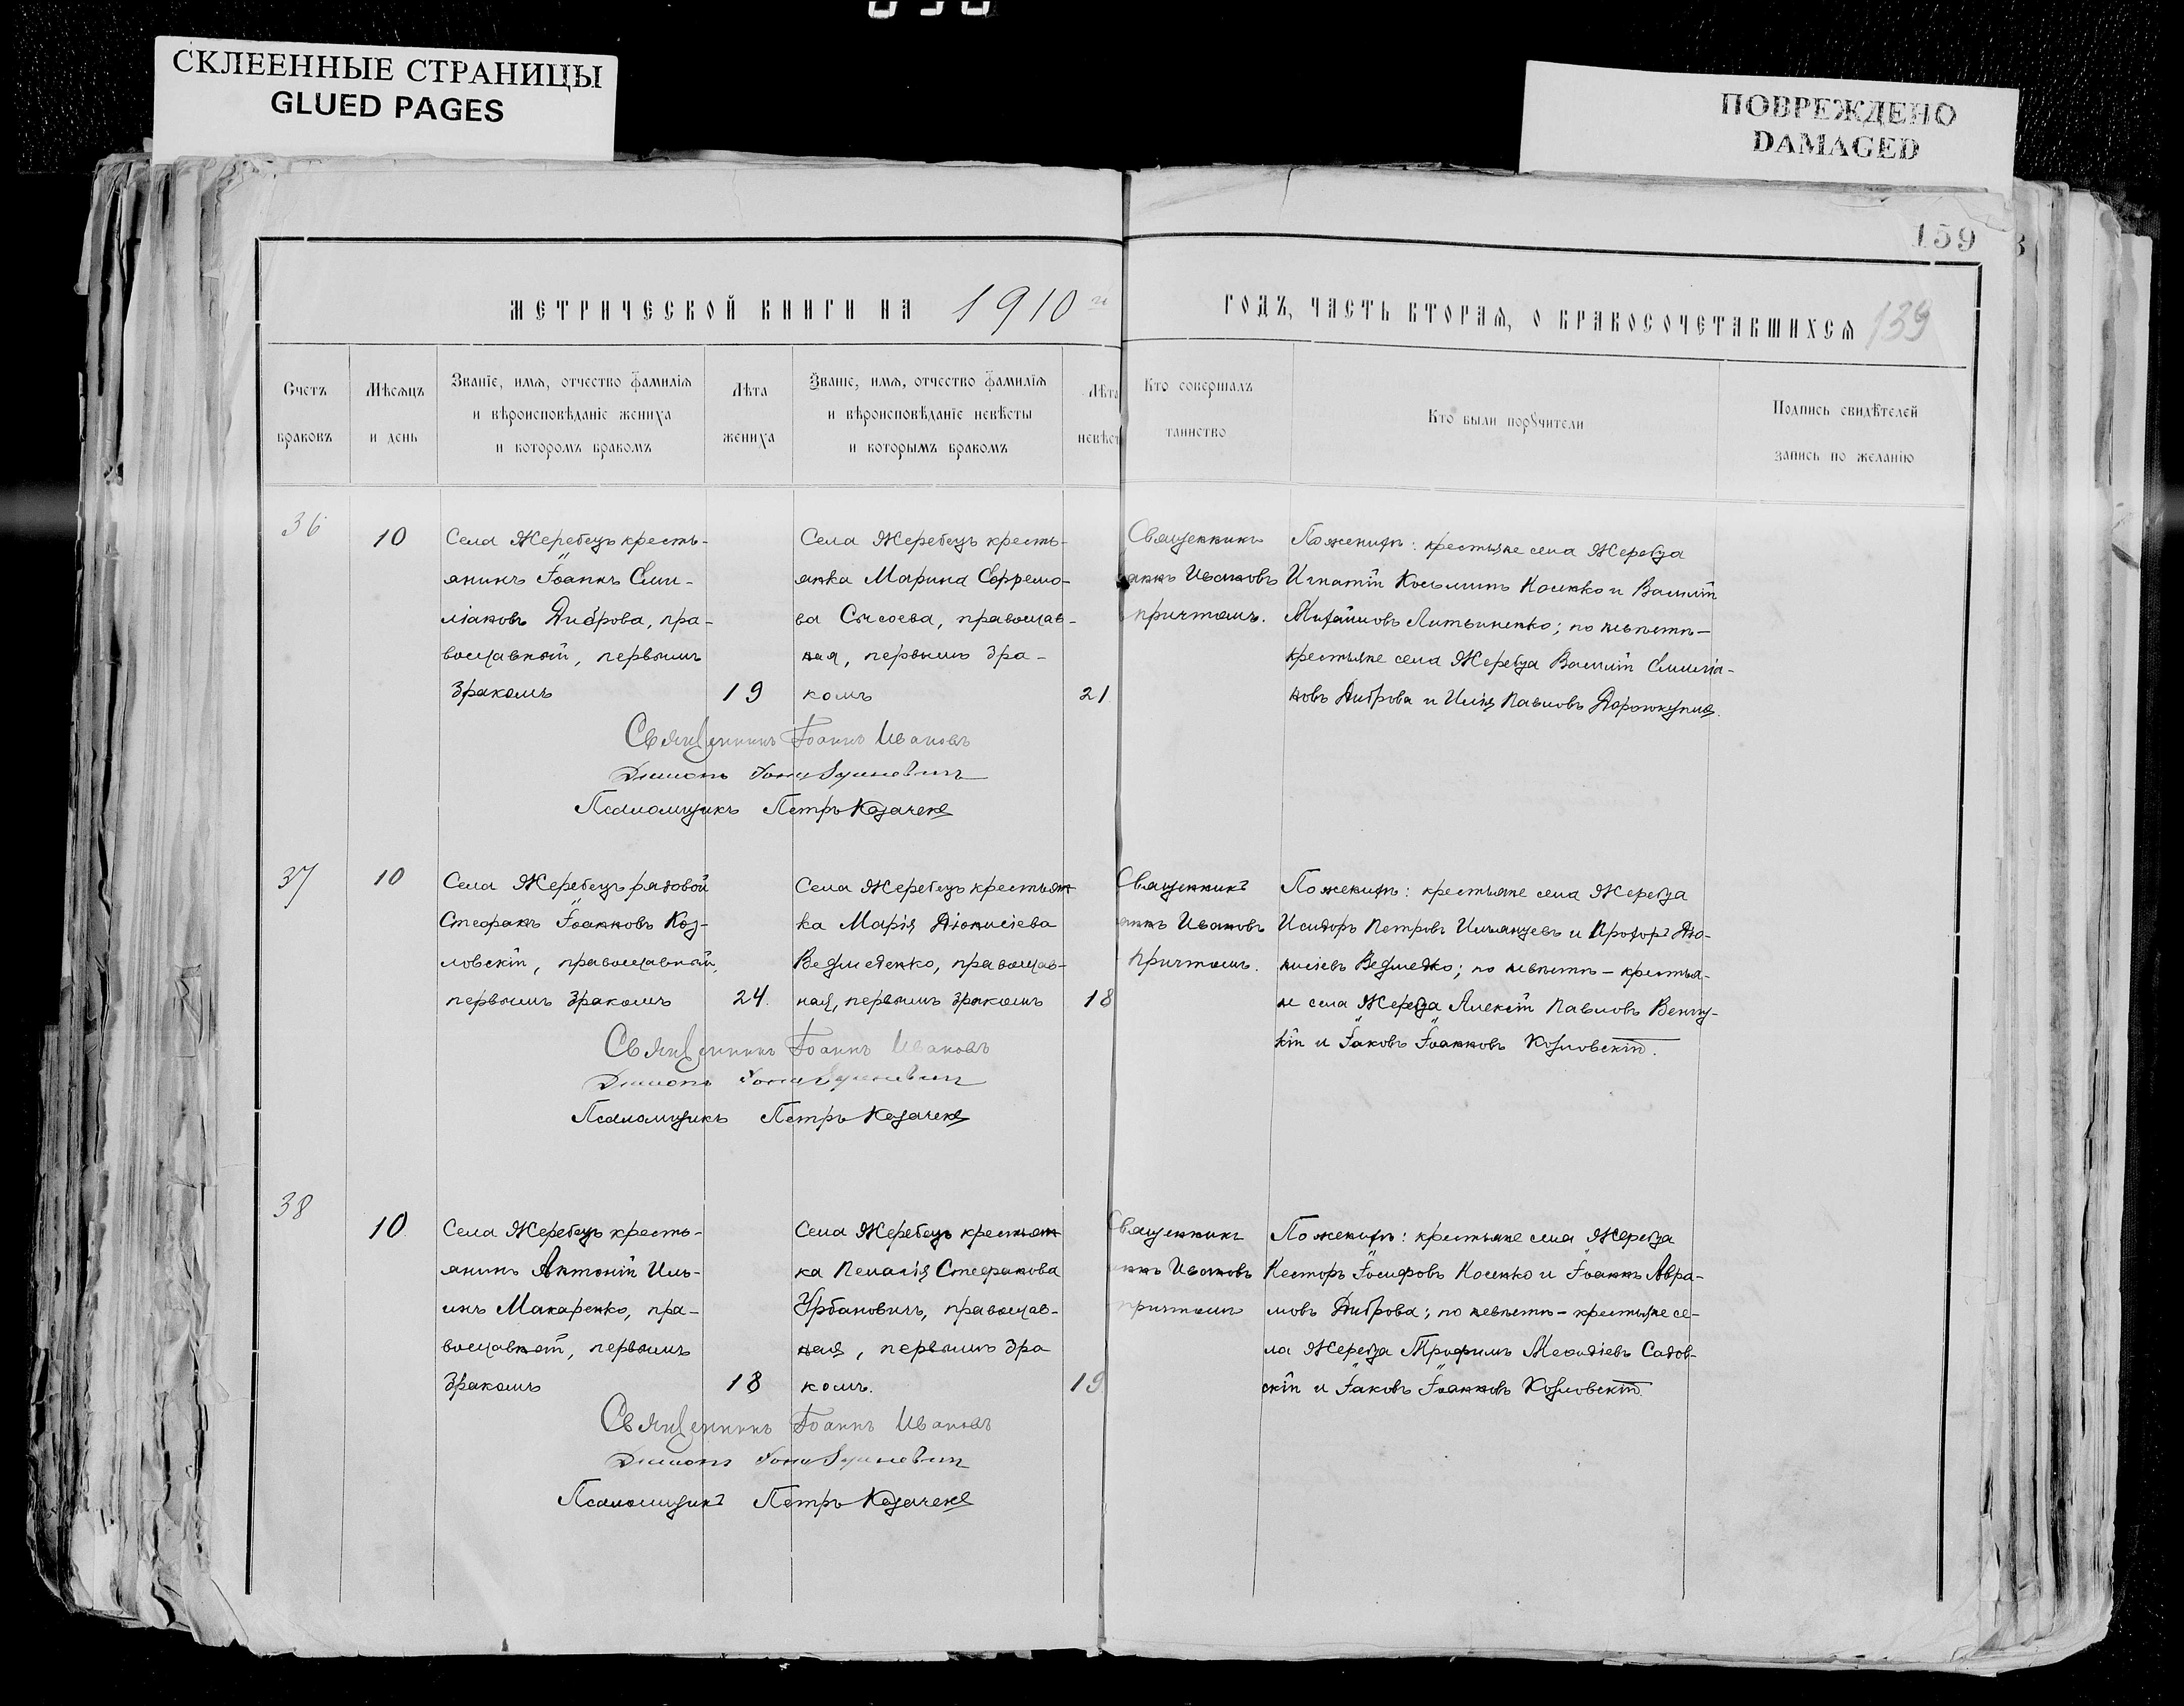 СКЛЕЕННЫЕ СТРАНИЦЫ
GLUED PAGES
ПОВРЕЖДЕНО
DAMAGED
159
МЕТРИЧЕСКОЙ КНИГИ НА 1910 й
ГОДЪ, ЧАСТЬ ВТОРАЯ, О БРАКОСОЧЕТАВШИХСЯ 139
Счетъ
браковъ
Мѣсяцъ
и день
Званіе, имя, отчество фамилія
и вѣроисповѣданіе жениха
и которомъ бракомъ
Лѣта
жениха
Званіе, имя, отчество фамилія
и вѣроисповѣданіе невѣсты
и которымъ бракомъ
Лѣта
невѣст
Кто совершалъ
таинство
Кто были поручители
Подпись свидѣтелей
запись по желанію
36
10
Села Жеребецъ кресть-
янинъ Іоаннъ Сими-
ліановъ Диброва, пра-
вославный, первымъ
бракомъ
19
Села Жеребецъ кресть-
янка Марина Ефремо-
ва Сысоева, православ-
ная, первымъ бра-
комъ
21
Священникъ
аннъ Ивановъ
причтомъ.
По женихѣ: крестьяне села Жеребца
Игнатій Косьминъ Носенко и Василій
Михайловъ Литвиненко; по невѣстѣ-
крестьяне села Жеребца Василій Симиліа-
новъ Диброва и Илія Павловъ
Священникъ Іоаннъ Ивановъ
Діаконъ
Псаломщикъ Петръ Козаченко
37
10
Села Жеребецъ рядовой
Стефанъ Іоанновъ Коз-
ловскій, православный,
первымъ бракомъ
24.
Села Жеребецъ крестьян
ка Марія Діонисіева
Ведмеденко, православ-
ная, первымъ бракомъ
18
Священникъ
аннъ Ивановъ
причтомъ.
По женихѣ: крестьяне села Жеребца
Исидоръ Петровъ и Прохоръ Діо-
нисіевъ Ведмедко; по невѣстѣ - крестья-
не села Жеребца Алексій Павловъ
кій и Іаковъ Іоанновъ Козловскій.
Священникъ Іоаннъ Ивановъ
Діаконъ
Псаломщикъ Петръ Козаченко
38
10
Села Жеребецъ кресть-
янинъ Антоній Иль-
инъ Макаренко, пра-
вославный, первымъ
бракомъ
18
Села Жеребецъ крестьян
ка Пелагія Стефанова
Урбановичъ, православ-
ная, первымъ бра
комъ.
19
Священникъ
аннъ Ивановъ
причтомъ
По женихѣ: крестьяне села Жеребца
Несторъ Іосифовъ Носенко и Іоаннъ Авра-
мовъ Диброва; по невѣстѣ - крестьяне се-
ла Жеребца Трофимъ Меѳодіевъ Садов-
скій и Іаковъ Іоанновъ Козловскій.
Священникъ Іоаннъ Ивановъ
Діаконъ
Псаломщикъ Петръ Козаченко